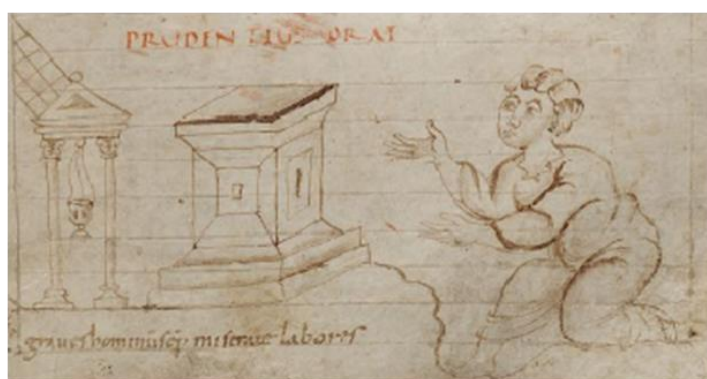 PRUDENTIUS ORAT
graves hominūsq; miserate labores